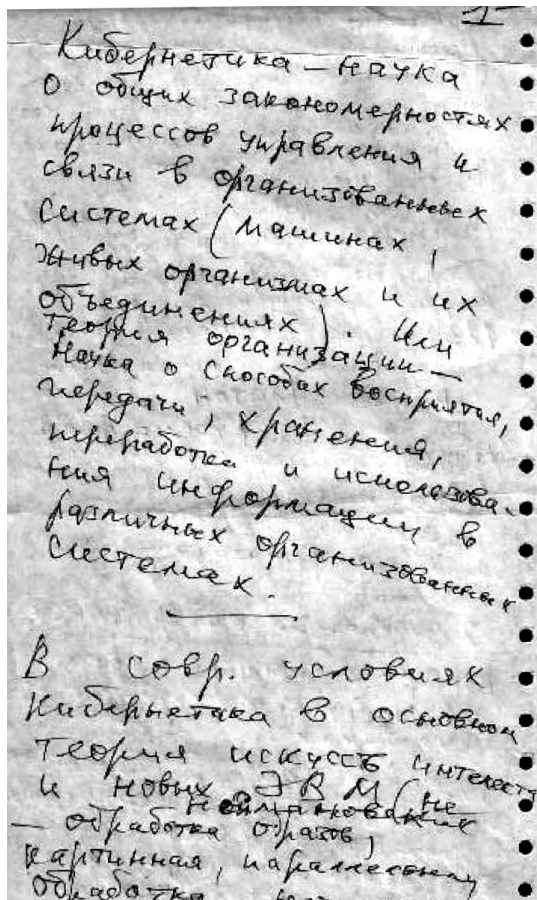 1
Кибернетика – наука
о общих закономерностях
процессов управления и
связи в организованных
системах (машинах,
живых организмах и их
объединениях). Или
теория организации –
наука о способах восприятия,
передачи, хранения,
переработка и использова-
ния информации в
различных организованных
системах.
В совр. условиях
Кибернетика в основном
теория искусств интеллект
и новых ЭВМ (не
неймановских
– обработка образов,
картинная, параллельная
обработка